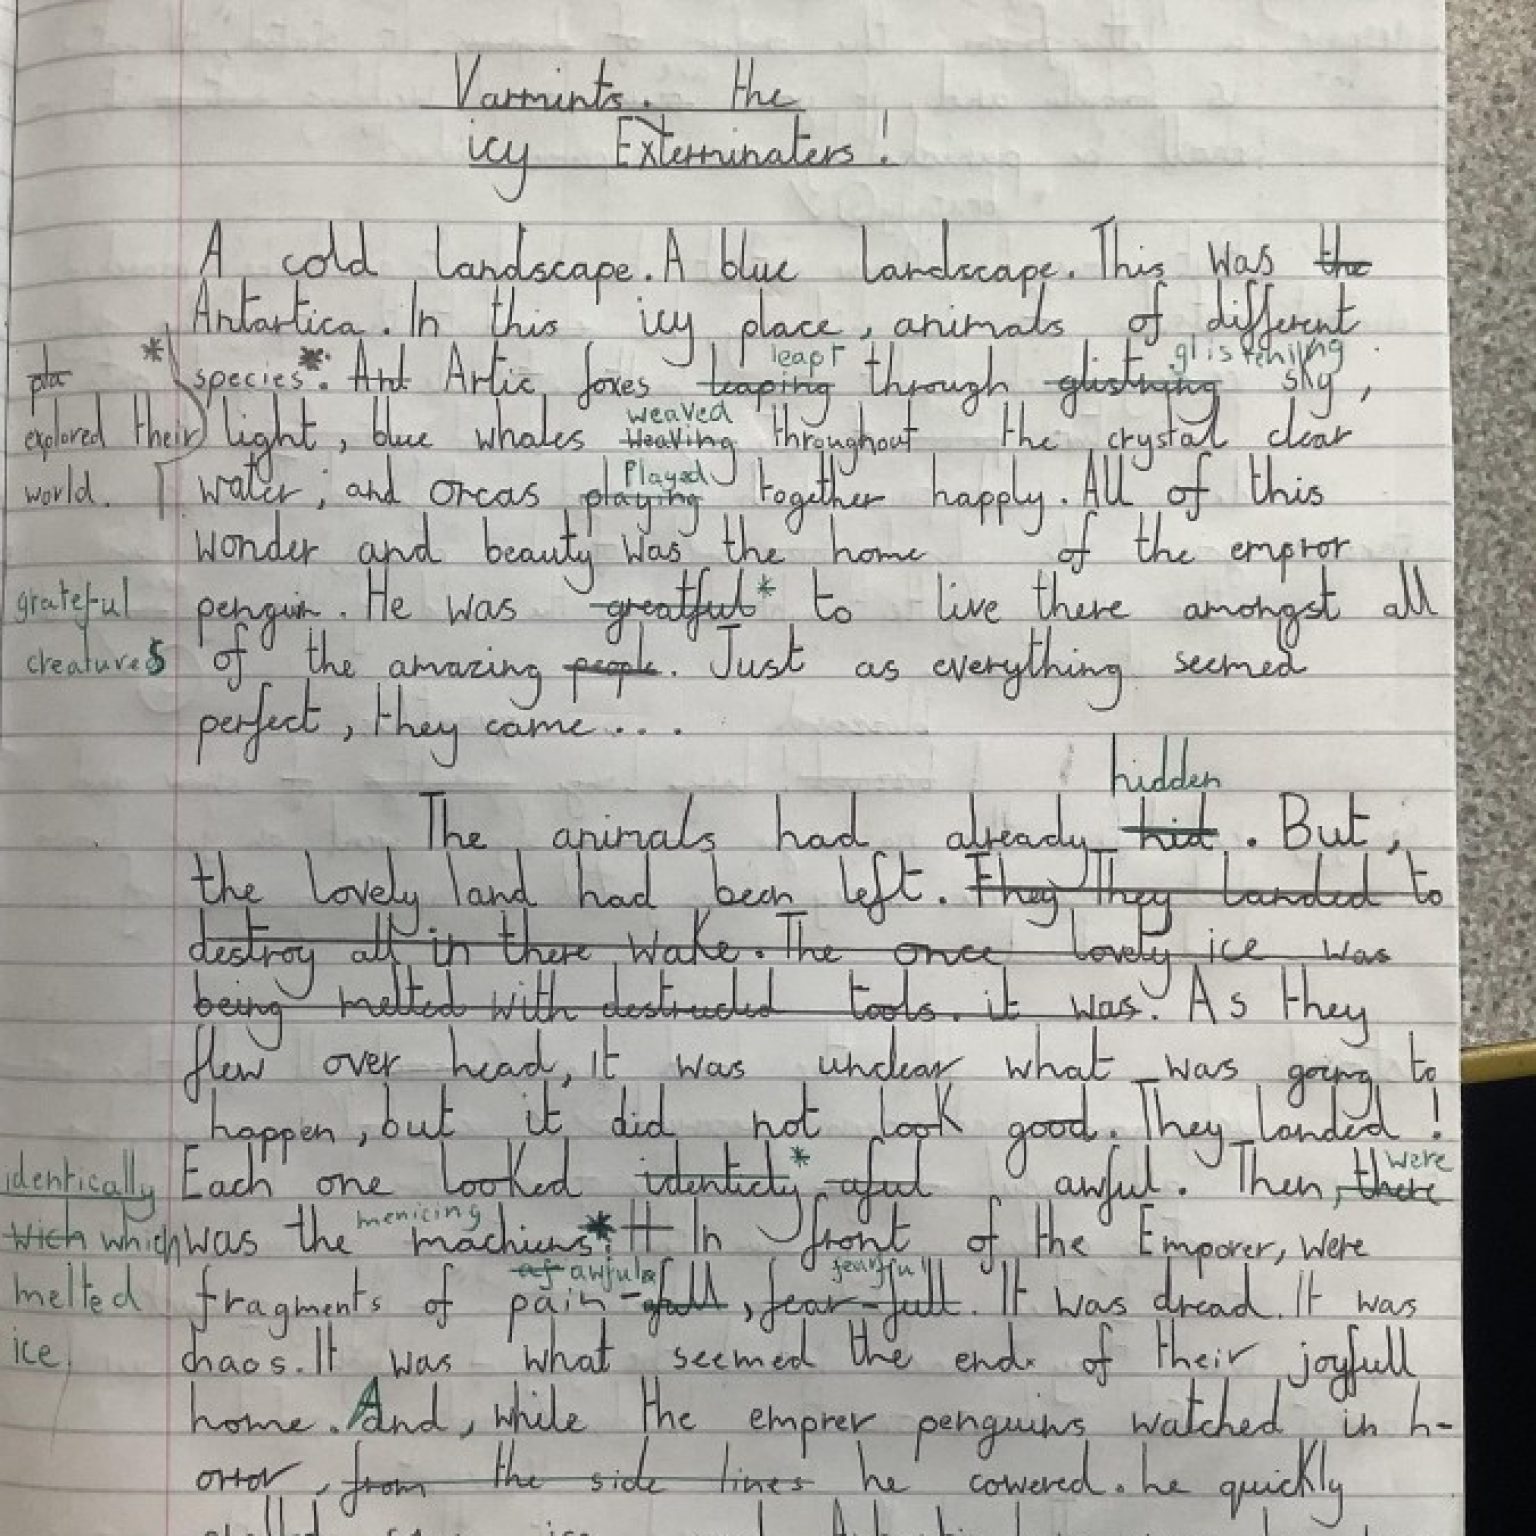 Varmints. the
icy Exterminaters!
A cold landscape. A blue landscape. This was the
Antartica. In this icy place, animals of different
pla * species*. Ant Artic foxes leaping leapt through glistning glistening sky,
explored their light, blue whales weaving weaved throughout the crystal clear
world. water, and orcas playing Played together happly. All of this
wonder and beauty was the home of the empror
grateful penguin. He was greatful* to live there amongst all
creatures of the amazing people. Just as everything seemed
perfect, they came....
hidden
The animals had already hid. But,
the lovely land had been left. They They landed to
destroy all in there wake. The once lovely ice was
being melted with destructed tools. it was. As they
flew over head, it was unclear what was going to
happen, but it did not look good. They landed!
identically Each one looked identicly* aful awful. Then, there were
wich which was the menicing machiens*. It In front of the Emporer, were
melted fragments of pain-full af awful, fear-full fearful. It was dread. It was
ice chaos. It was what seemed the end of their joyfull
home. And, while the emprer penguins watched in h-
orror, from the side lines he cowered. he quickly